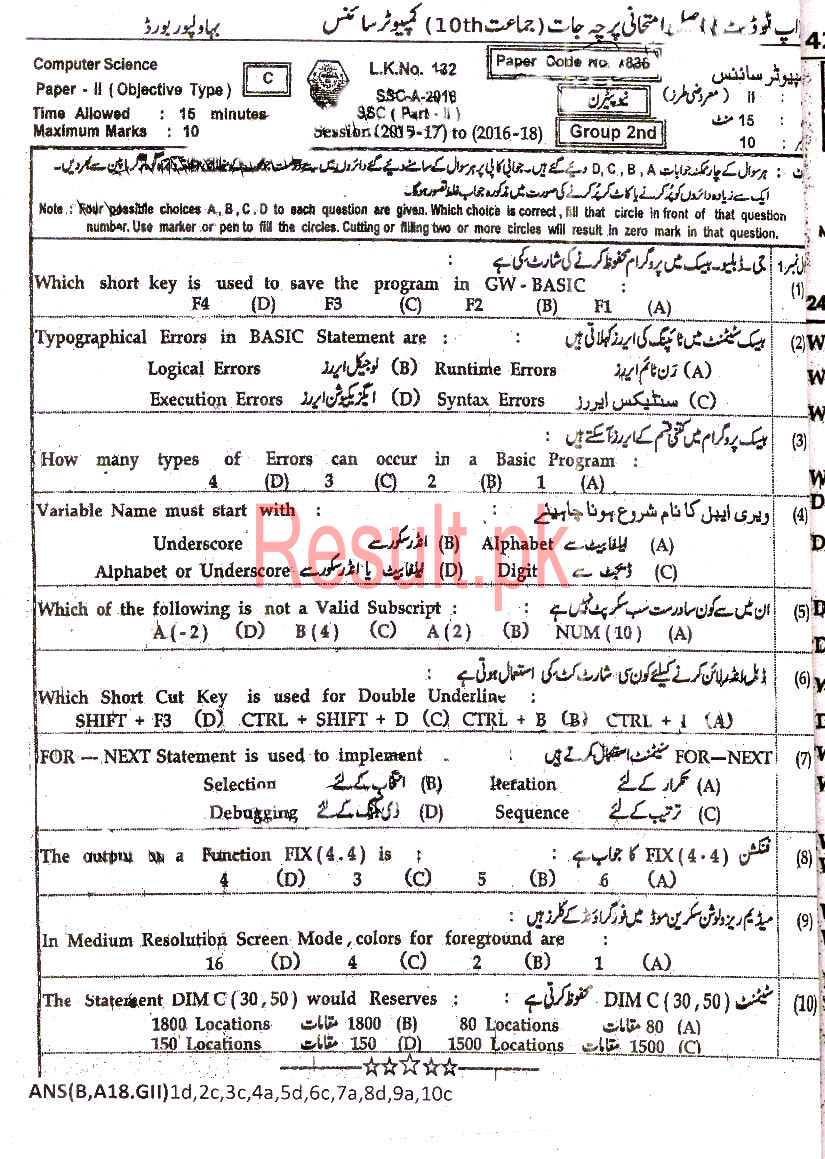 اپ ٹو ڈیٹ اصل امتحانی پرچہ جات (جماعت 10th) کمپیوٹر سائنس بہاولپور بورڈ
Computer Science
Paper - II (Objective Type)
Time Allowed : 15 minutes
Maximum Marks : 10
C
L.K.No. 132
SSC-A-2018
SSC (Part - II)
Session (2015-17) to (2016-18)
Paper Code No.
نیو پیٹرن
Group 2nd
کمپیوٹر سائنس
II (معروضی طرز)
15 منٹ
10
Note : Four possible choices A, B, C, D to each question are given. Which choice is correct, fill that circle in front of that question
number. Use marker or pen to fill the circles. Cutting or filling two or more circles will result in zero mark in that question.
جی۔ڈبلیو۔بیسک میں پروگرام محفوظ کرنے کی شارٹ کی ہے :
Which short key is used to save the program in GW - BASIC : (1)
F4 (D) F3 (C) F2 (B) F1 (A)
Typographical Errors in BASIC Statement are : : بیسک سٹیٹمنٹ میں ٹائپنگ کی ایررز کہلاتی ہیں (2)
Logical Errors لوجیکل ایررز (B) Runtime Errors رَن ٹائم ایررز (A)
Execution Errors ایگزیکیوشن ایررز (D) Syntax Errors سنٹیکس ایررز (C)
بیسک پروگرام میں کتنی قسم کے ایررز آسکتے ہیں : (3)
How many types of Errors can occur in a Basic Program :
4 (D) 3 (C) 2 (B) 1 (A)
Variable Name must start with : : ویری ایبل کا نام شروع ہونا چاہیئے (4)
Underscore انڈرسکورسے (B) Alphabet ایلفابیٹ سے (A)
Alphabet or Underscore ایلفابیٹ یا انڈرسکورسے (D) Digit ڈیجٹ سے (C)
Which of the following is not a Valid Subscript : : ان میں سے کون سا درست سب سکرپٹ نہیں ہے (5)
A (-2) (D) B (4) (C) A (2) (B) NUM (10) (A)
ڈبل انڈرلائن کرنے کیلئے کون سی شارٹ کٹ کی استعمال ہوتی ہے : (6)
Which Short Cut Key is used for Double Underline :
SHIFT + F3 (D) CTRL + SHIFT + D (C) CTRL + B (B) CTRL + I (A)
FOR — NEXT Statement is used to implement : FOR—NEXT سٹیٹمنٹ استعمال کرتے ہیں (7)
Selection انتخاب کے لئے (B) Iteration تکرار کے لئے (A)
Debugging ڈی بگنگ کے لئے (D) Sequence ترتیب کے لئے (C)
The output of a Function FIX (4.4) is : : فنکشن FIX (4.4) کا جواب ہے (8)
4 (D) 3 (C) 5 (B) 6 (A)
میڈیم ریزولوشن سکرین موڈ میں فورگراؤنڈ کے کلرز ہیں : (9)
In Medium Resolution Screen Mode, colors for foreground are :
16 (D) 4 (C) 2 (B) 1 (A)
The Statement DIM C (30, 50) would Reserves : : سٹیٹمنٹ DIM C (30, 50) محفوظ کرتی ہے (10)
1800 Locations 1800 مقامات (B) 80 Locations 80 مقامات (A)
150 Locations 150 مقامات (D) 1500 Locations 1500 مقامات (C)
ANS(B,A18.GII)1d,2c,3c,4a,5d,6c,7a,8d,9a,10c
Result.pk